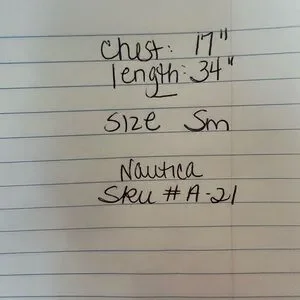 Chest: 17"
length: 34"
Size Sm
Nautica
Sku # A-21